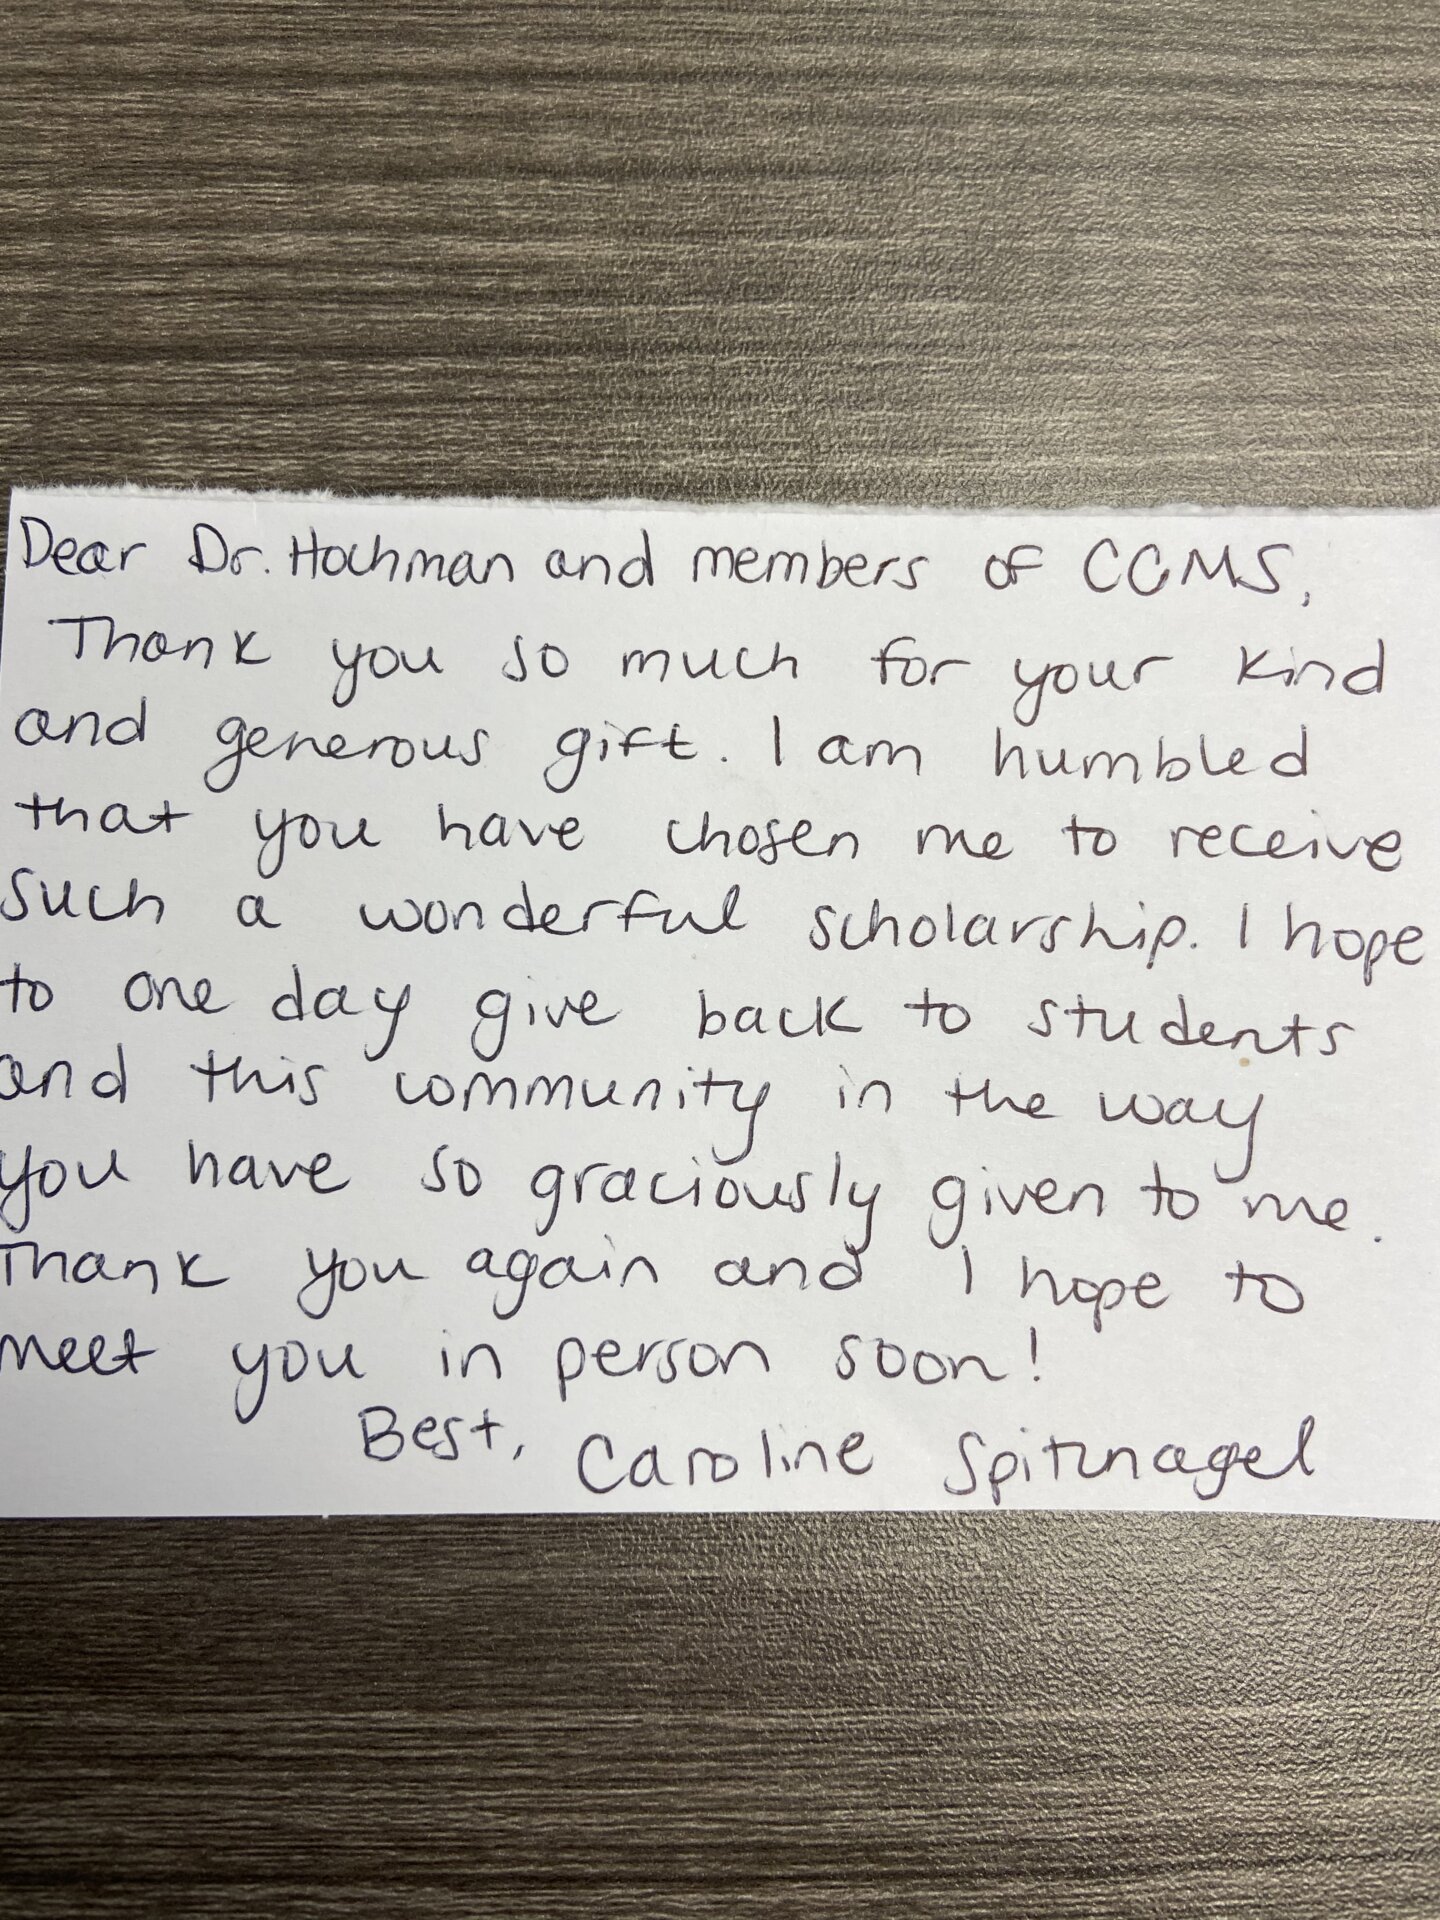 Dear Dr. Hochman and members of CCMS,
Thank you so much for your kind
and generous gift. I am humbled
that you have chosen me to receive
such a wonderful scholarship. I hope
to one day give back to students
and this community in the way
you have so graciously given to me.
Thank you again and I hope to
meet you in person soon!
Best, Caroline Spitznagel